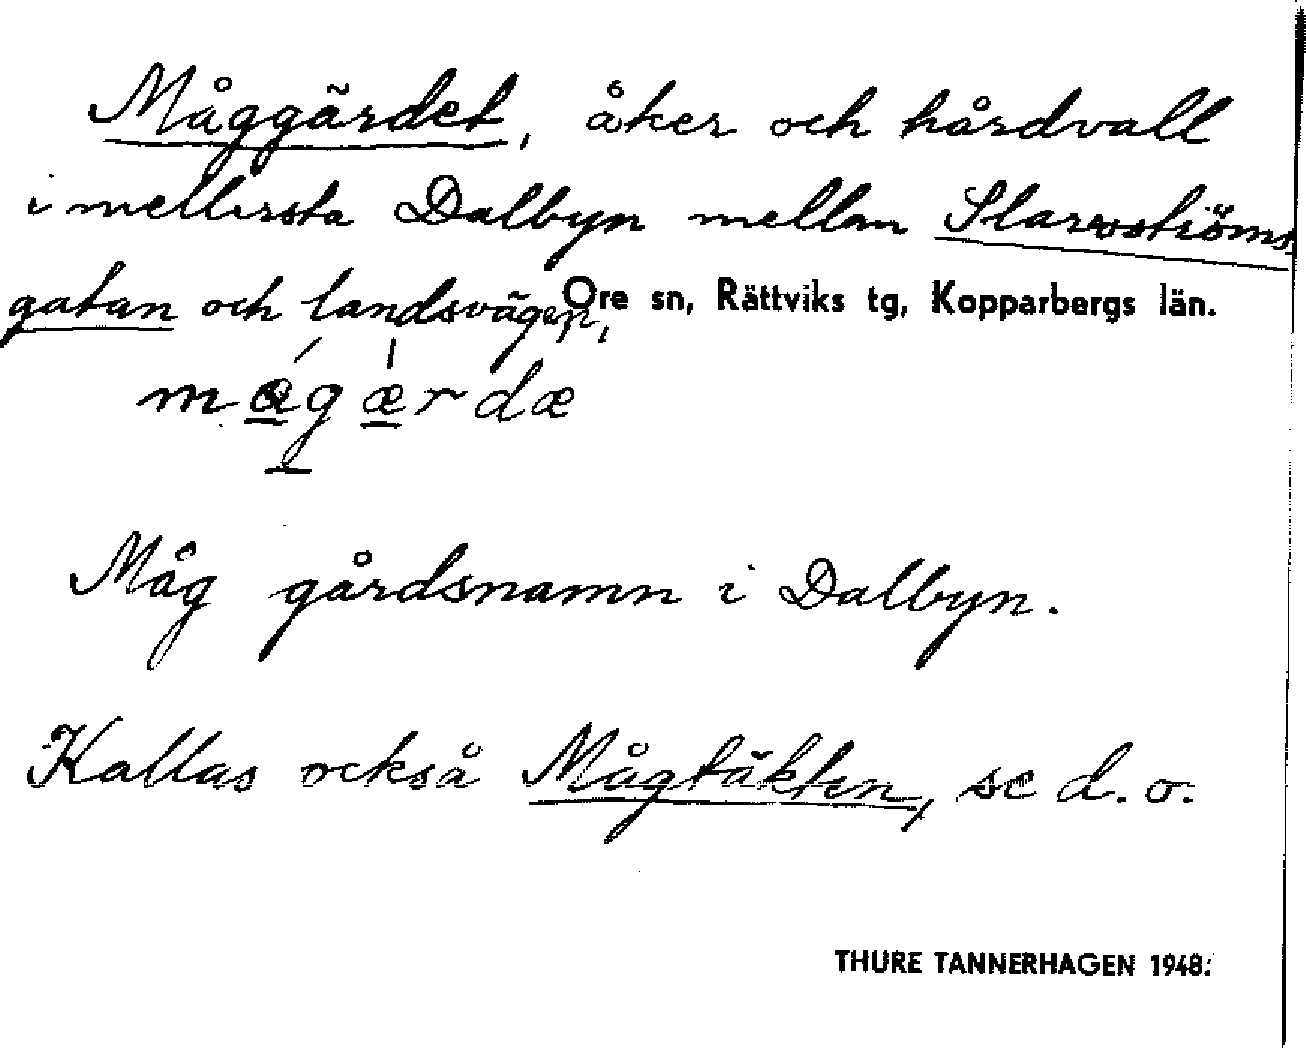 Måggärdet, åker och hårdvall
i mellersta Dalbyn mellan
gatan och landsvägen,
Ore sn, Rättviks tg, Kopparbergs län.
Måg gårdsnamn i Dalbyn.
Kallas också Mågtäkten, se d. o.
THURE TANNERHAGEN 1948.